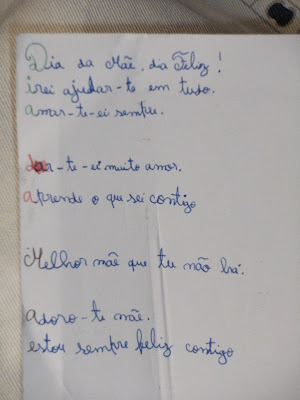 Dia da Mãe, dia Feliz!
irei ajudar-te em tudo.
amar-te-ei sempre.
dar-te-ei muito amor.
aprende o que sei contigo
Melhor mãe que tu não há.
adoro-te mãe.
estou sempre feliz contigo